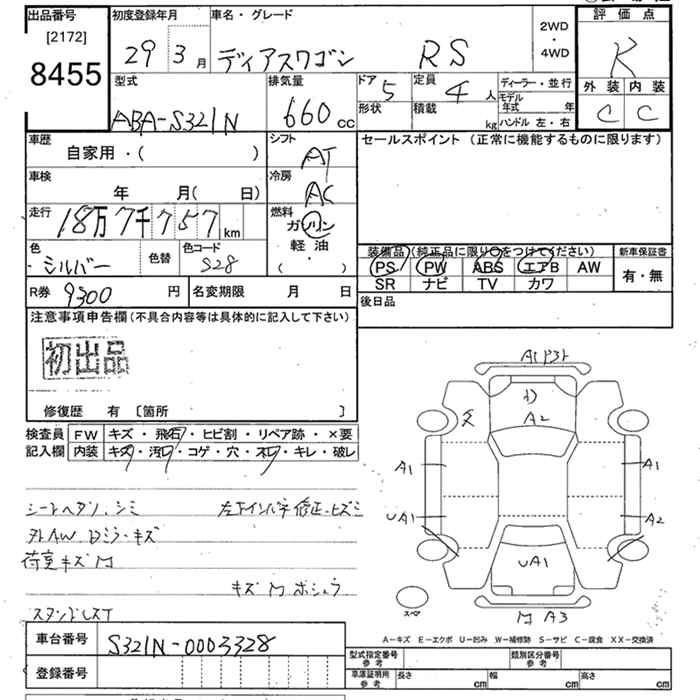 出品番号 初度登録年月 車名・グレード 2WD・4WD 評価点
[2172]
8455 29 3月 ディアスワゴン RS R
型式 排気量 ドア 5 定員 4人 ディーラー・並行 外装 内装
ABA-S321N 660cc 形状 積載 kg モデル年式 年 C C
ハンドル 左・右
車歴 シフト セールスポイント (正常に機能するものに限ります)
自家用・( ) AT
車検 冷房
年 月( 日) AC
走行 燃料
18万7千757km ガソリン
軽油
色 色替 色コード ( ・ )
シルバー S28
装備品(純品に限り○をつけてください) 新車保証書
PS PW ABS エアB AW 有・無
SR ナビ TV カワ
R券 9300円 名変期限 月 日 後日品
注意事項申告欄(不具合内容等は具体的に記入して下さい)
初出品
修復歴 有 [箇所 ]
検査員 FW キズ・飛石・ヒビ割・リペア跡・×要
記入欄 内装 キズ・汚レ・コゲ・穴・スレ・キレ・破レ
シートヘタリ、シミ
キズ
荷室キズ
キズ
A2
A1
A1
UA1
A2
UA1
A3
スペア
A-キズ E-エクボ U-凹み W-補修跡 S-サビ C-腐食 XX-交換済
車台番号 S321N-0003328
登録番号
型式指定番号 参考 類別区分番号 参考
車庫証明用 参考 長さ cm 幅 cm 高さ cm